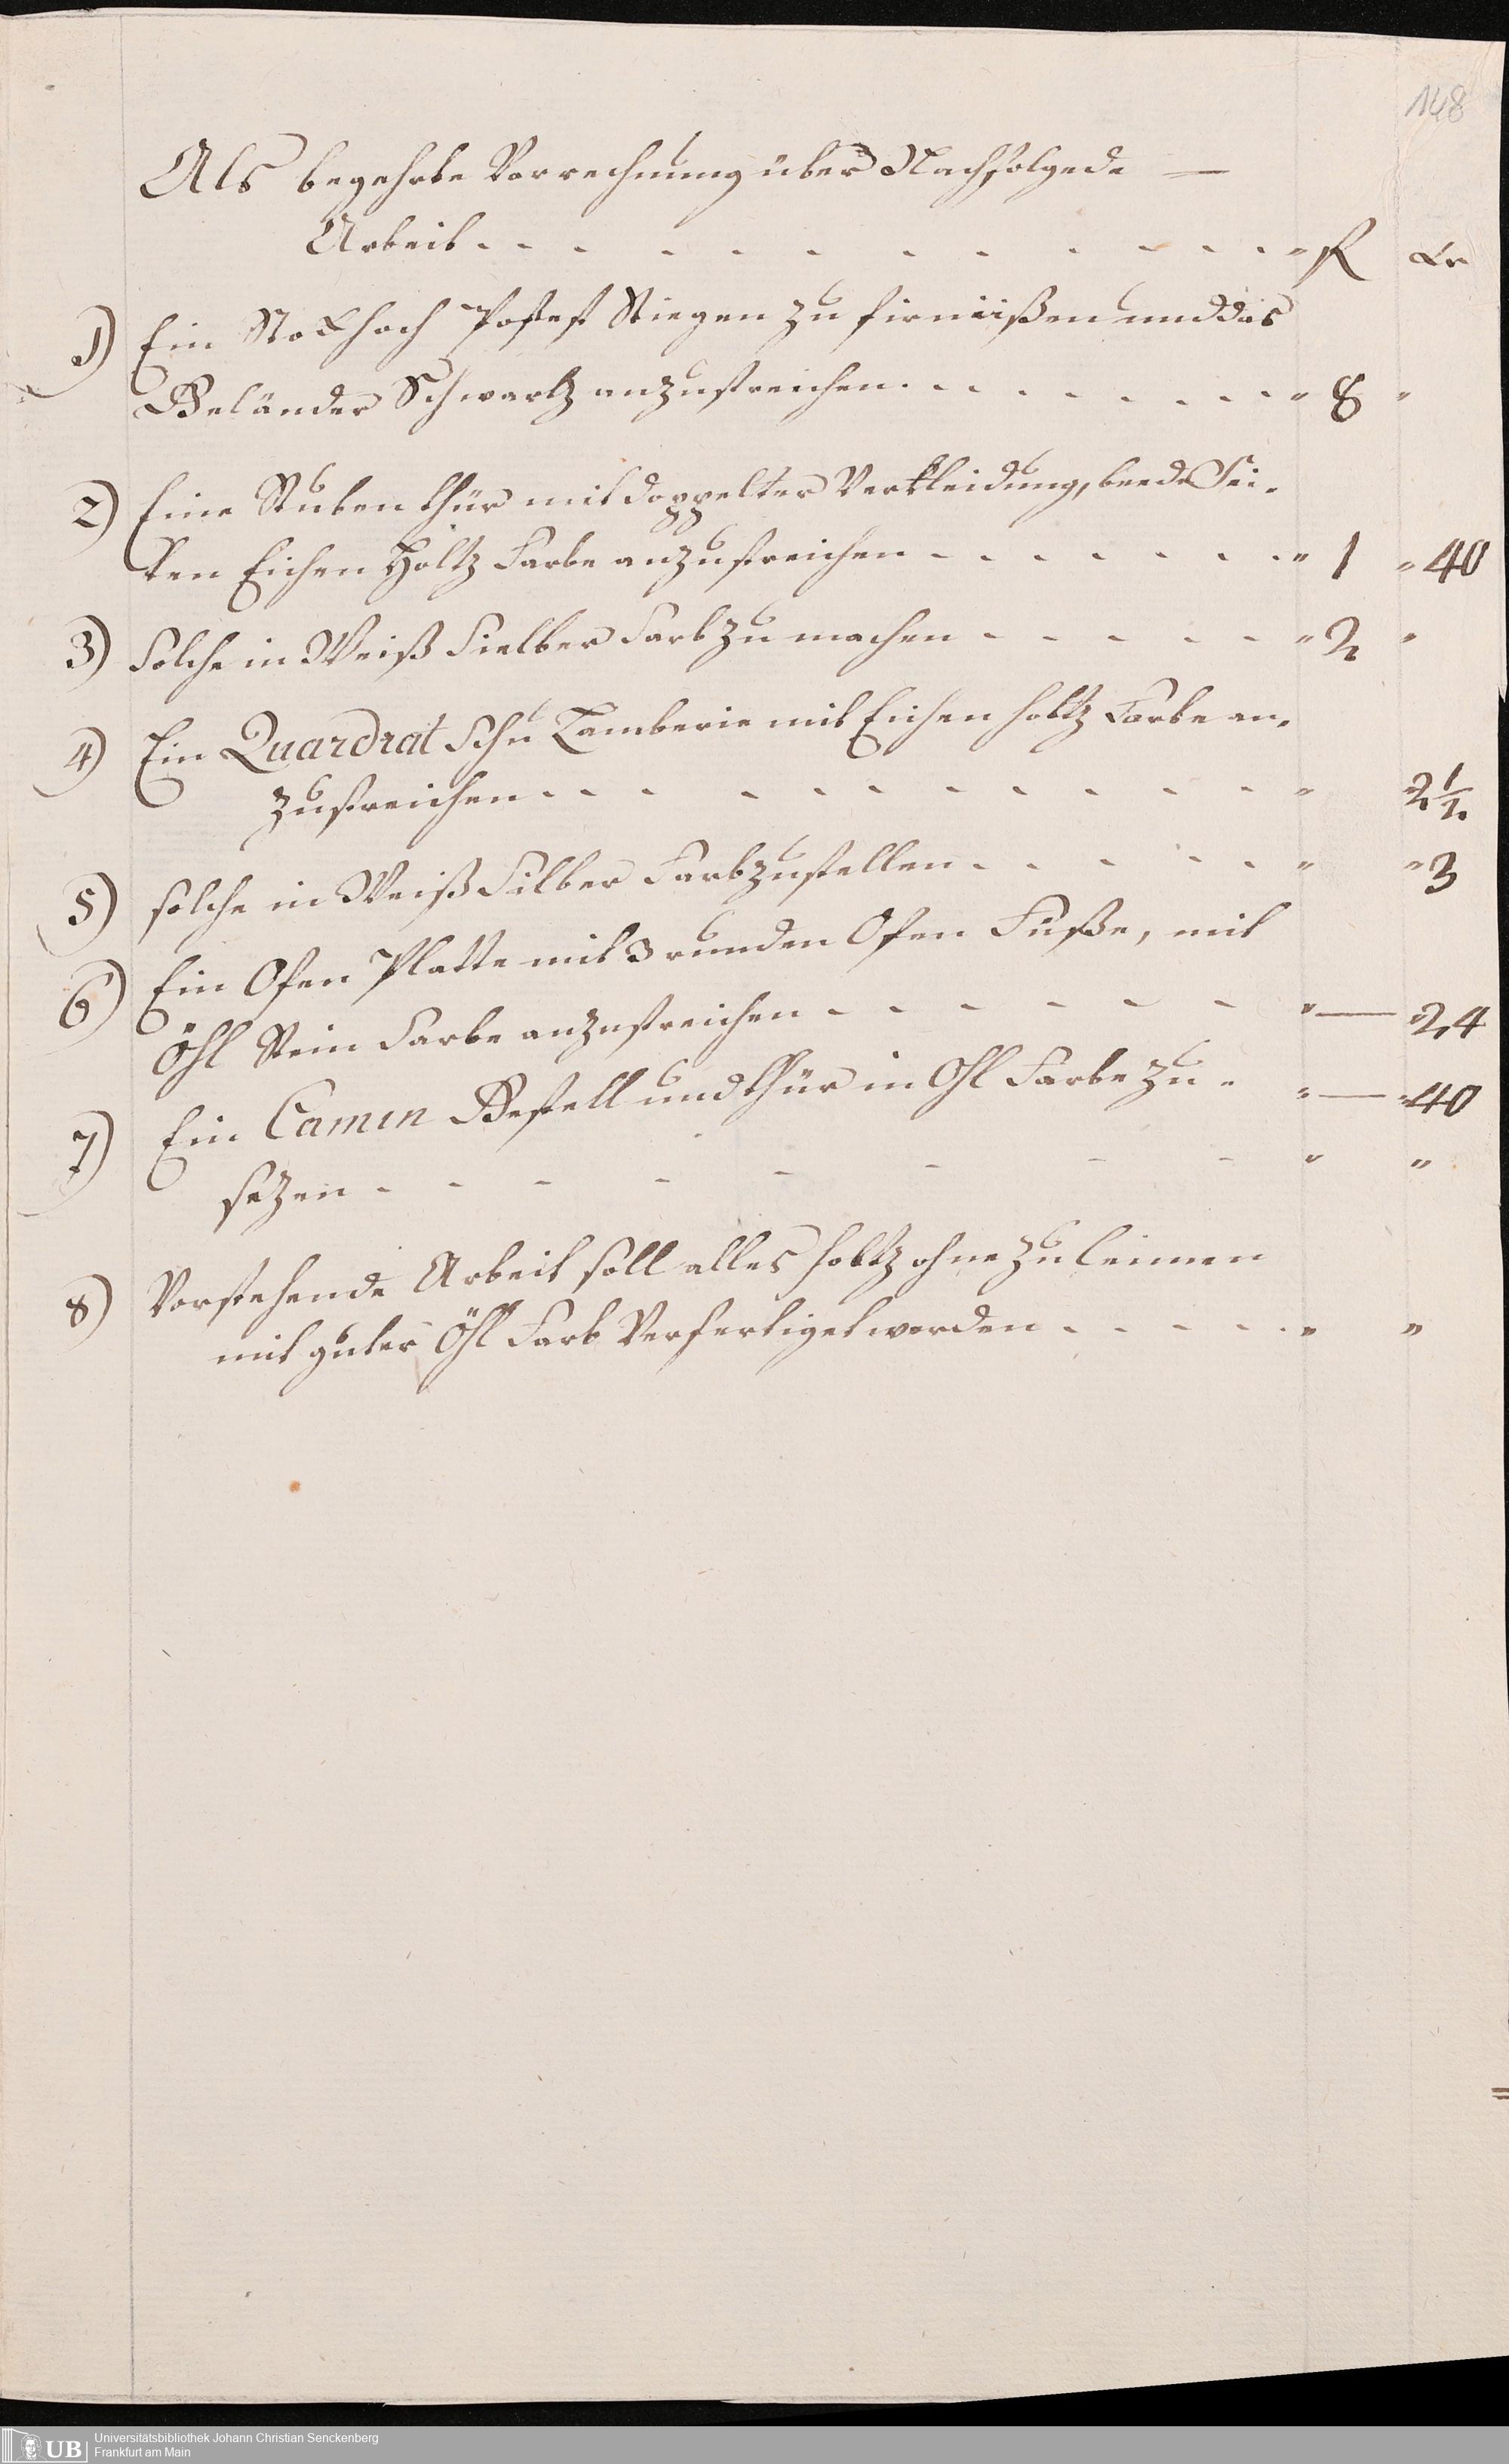 148
Als begehrte Vorrechnung über Nachfolgede —
Arbeit - - - - - - - - - - - - " fl xr
1) Ein Stockhoch Postest Stiegen zu firniißen und das
Geländer Schwartz anzustreichen - - - - - - - - " 8 "
2) Eine Stuben thür mit doppelter Verkleidung, beede Sei-
ten Eichen Holtz Farbe anzustreichen - - - - - - - " 1 " 40
3) Solche in Weiß Sielber Farb zu machen - - - - - " 2 "
4) Ein Quardrat Schu Lamberie mit Eichen holtz Farbe an-
zustreichen - - - - - - - - - - - " 2 1/2
5) solche in Weiß Silber Farb zustellen - - - - - " " 3
6) Ein Ofen Platte mit 3 runden Ofen Füße, mit
Öhl Stein Farbe anzustreichen - - - - - - " — 24
7) Ein Camin Gestell und thür in Ohl Farbe zu - " — " 40
sezen - - - - - - - - " "
8) Vorstehende Arbeit soll alles holtz ohne zu leimen
mit guter Öhl Farb Verfertiget werden - - - - - " "
UB
Universitätsbibliothek Johann Christian Senckenberg
Frankfurt am Main